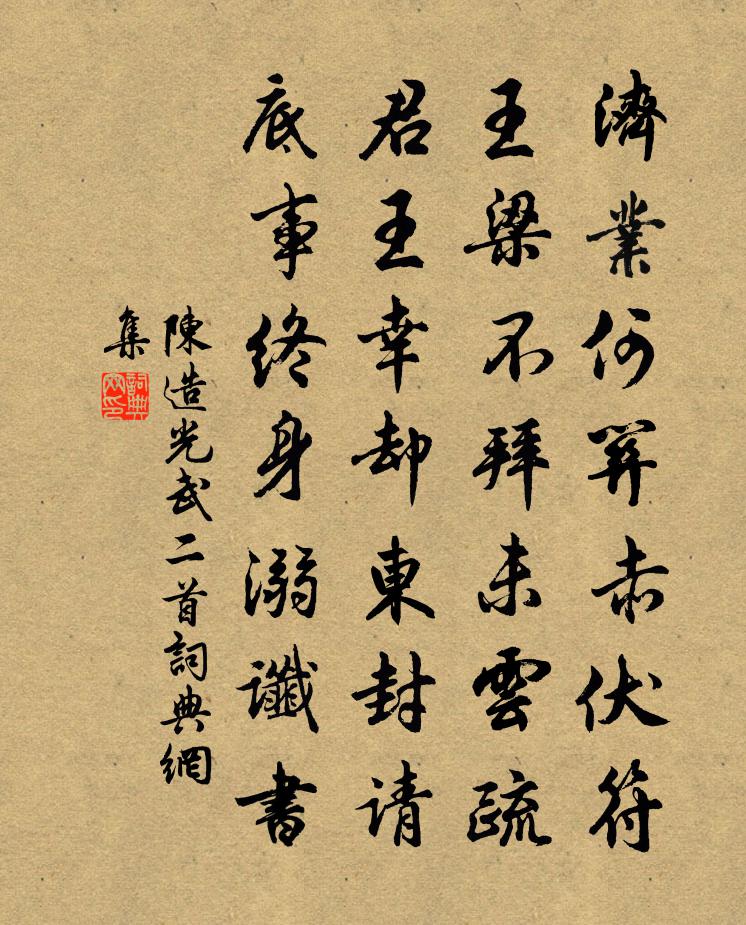 濟業何關赤伏符
王梁不拜未雲疏
君王幸却東封請
底事終身溺讖書
陳造光武二首詞典網
集
詞典網印